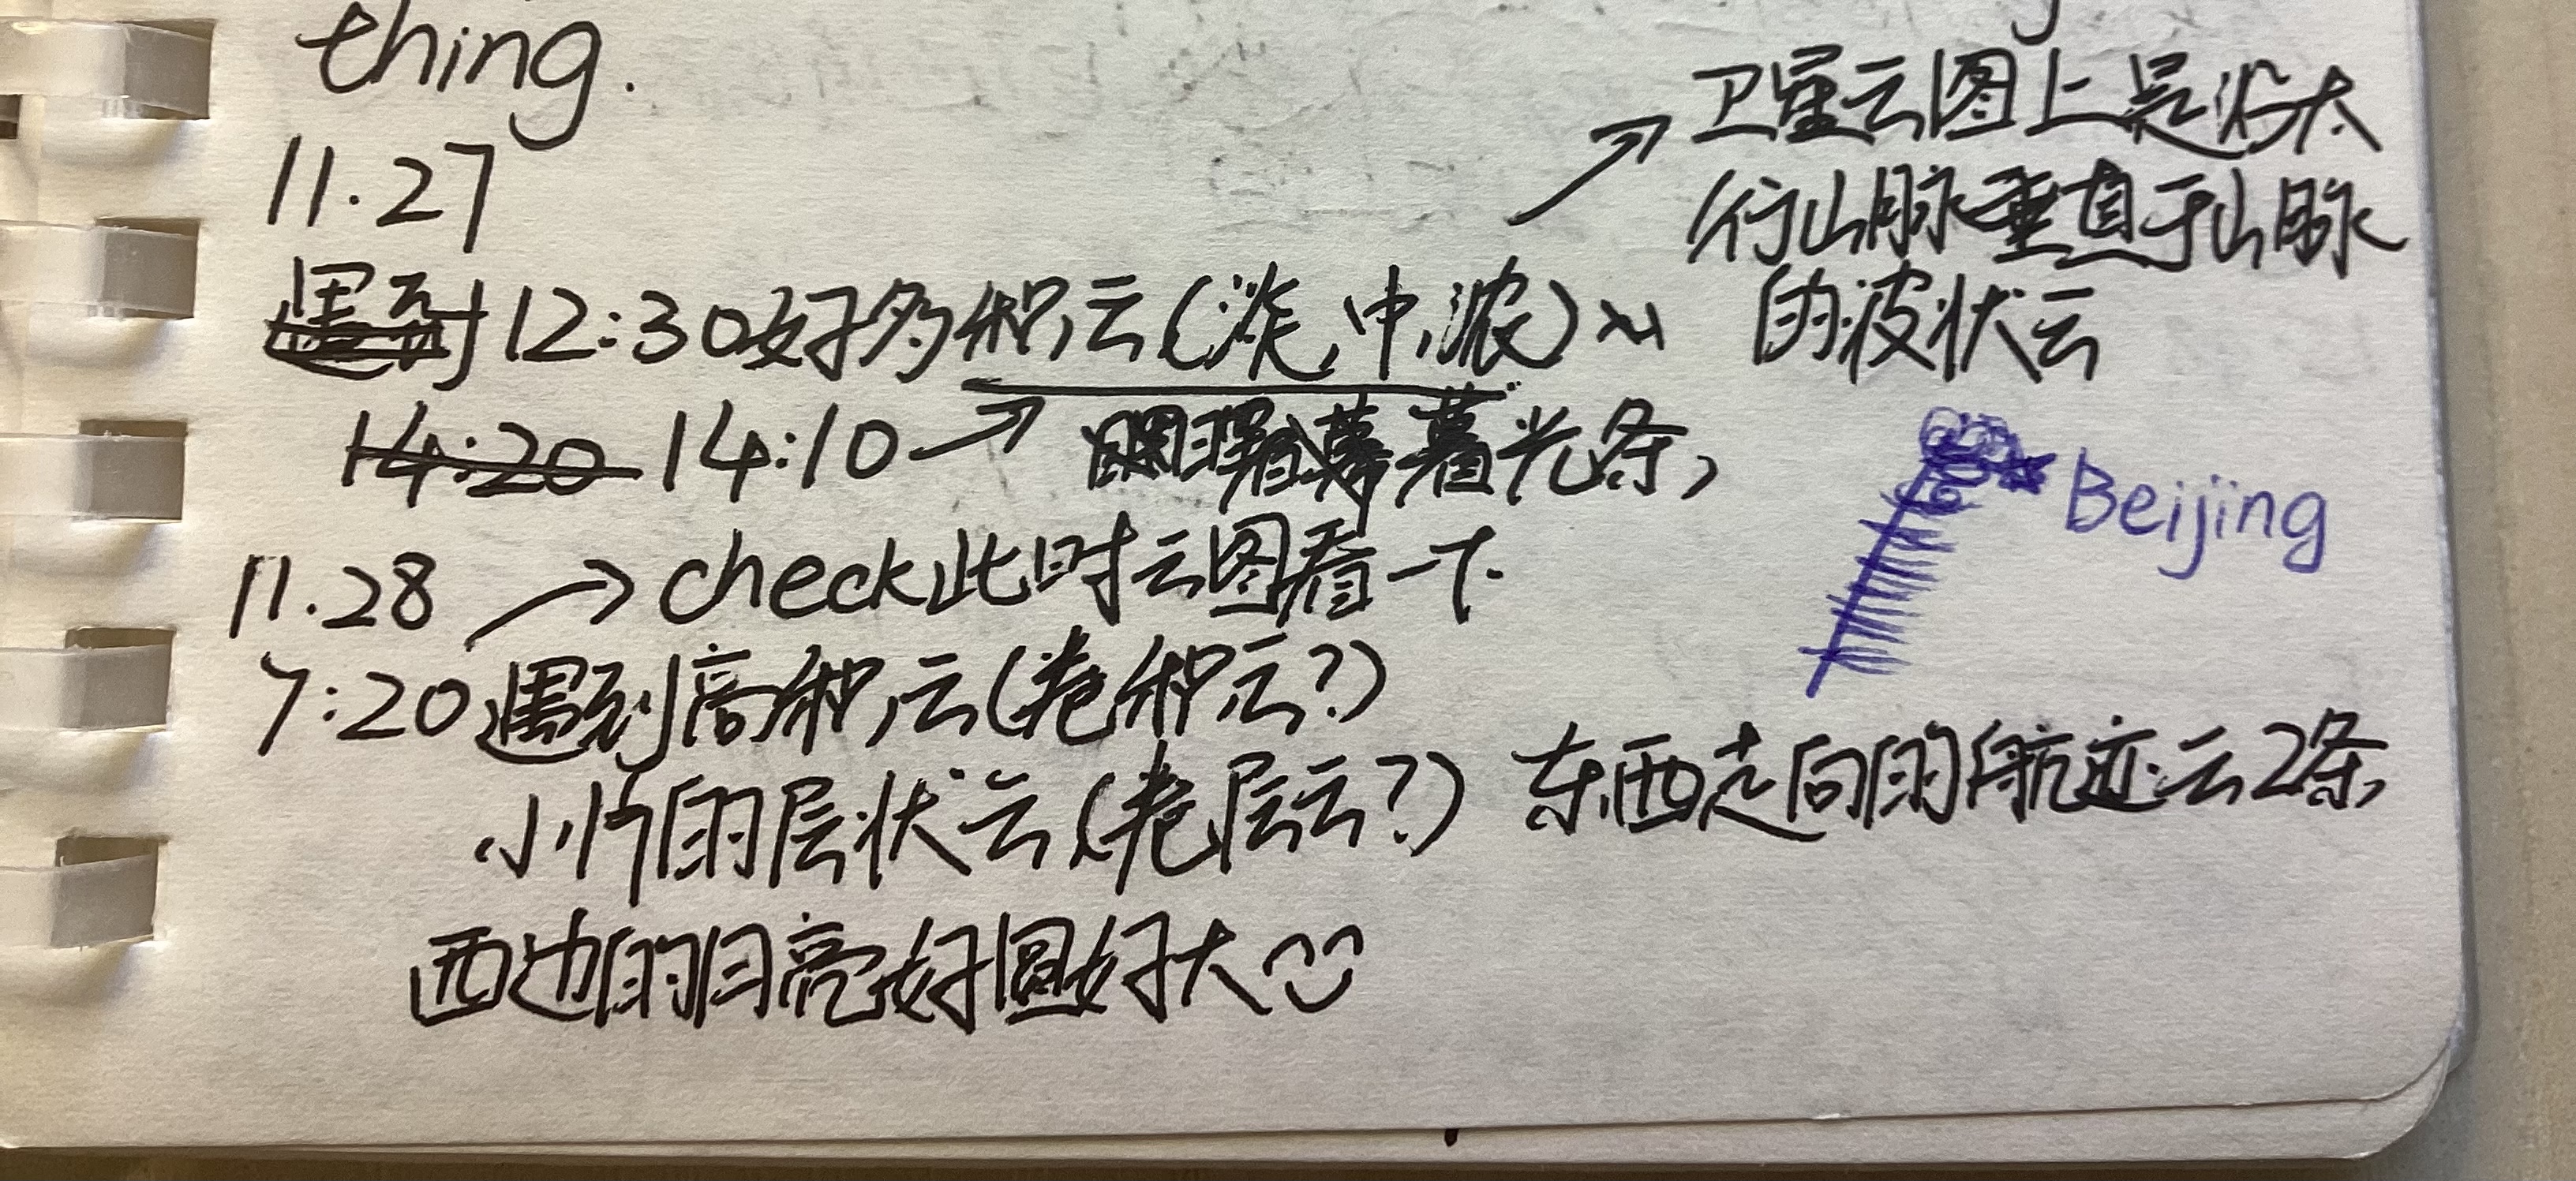 thing.
11.27
遇到12:30好多积云(淡,中,浓)
14:20 14:10→ 暮光条,
→卫星云图上是沿太
行山脉垂直于山脉
的波状云
Beijing
11.28 →check此时云图看一下.
7:20遇到高积云(卷积云?)
小片的层状云(卷层云?)
东西走向的航迹云2条,
西边的月亮好圆好大